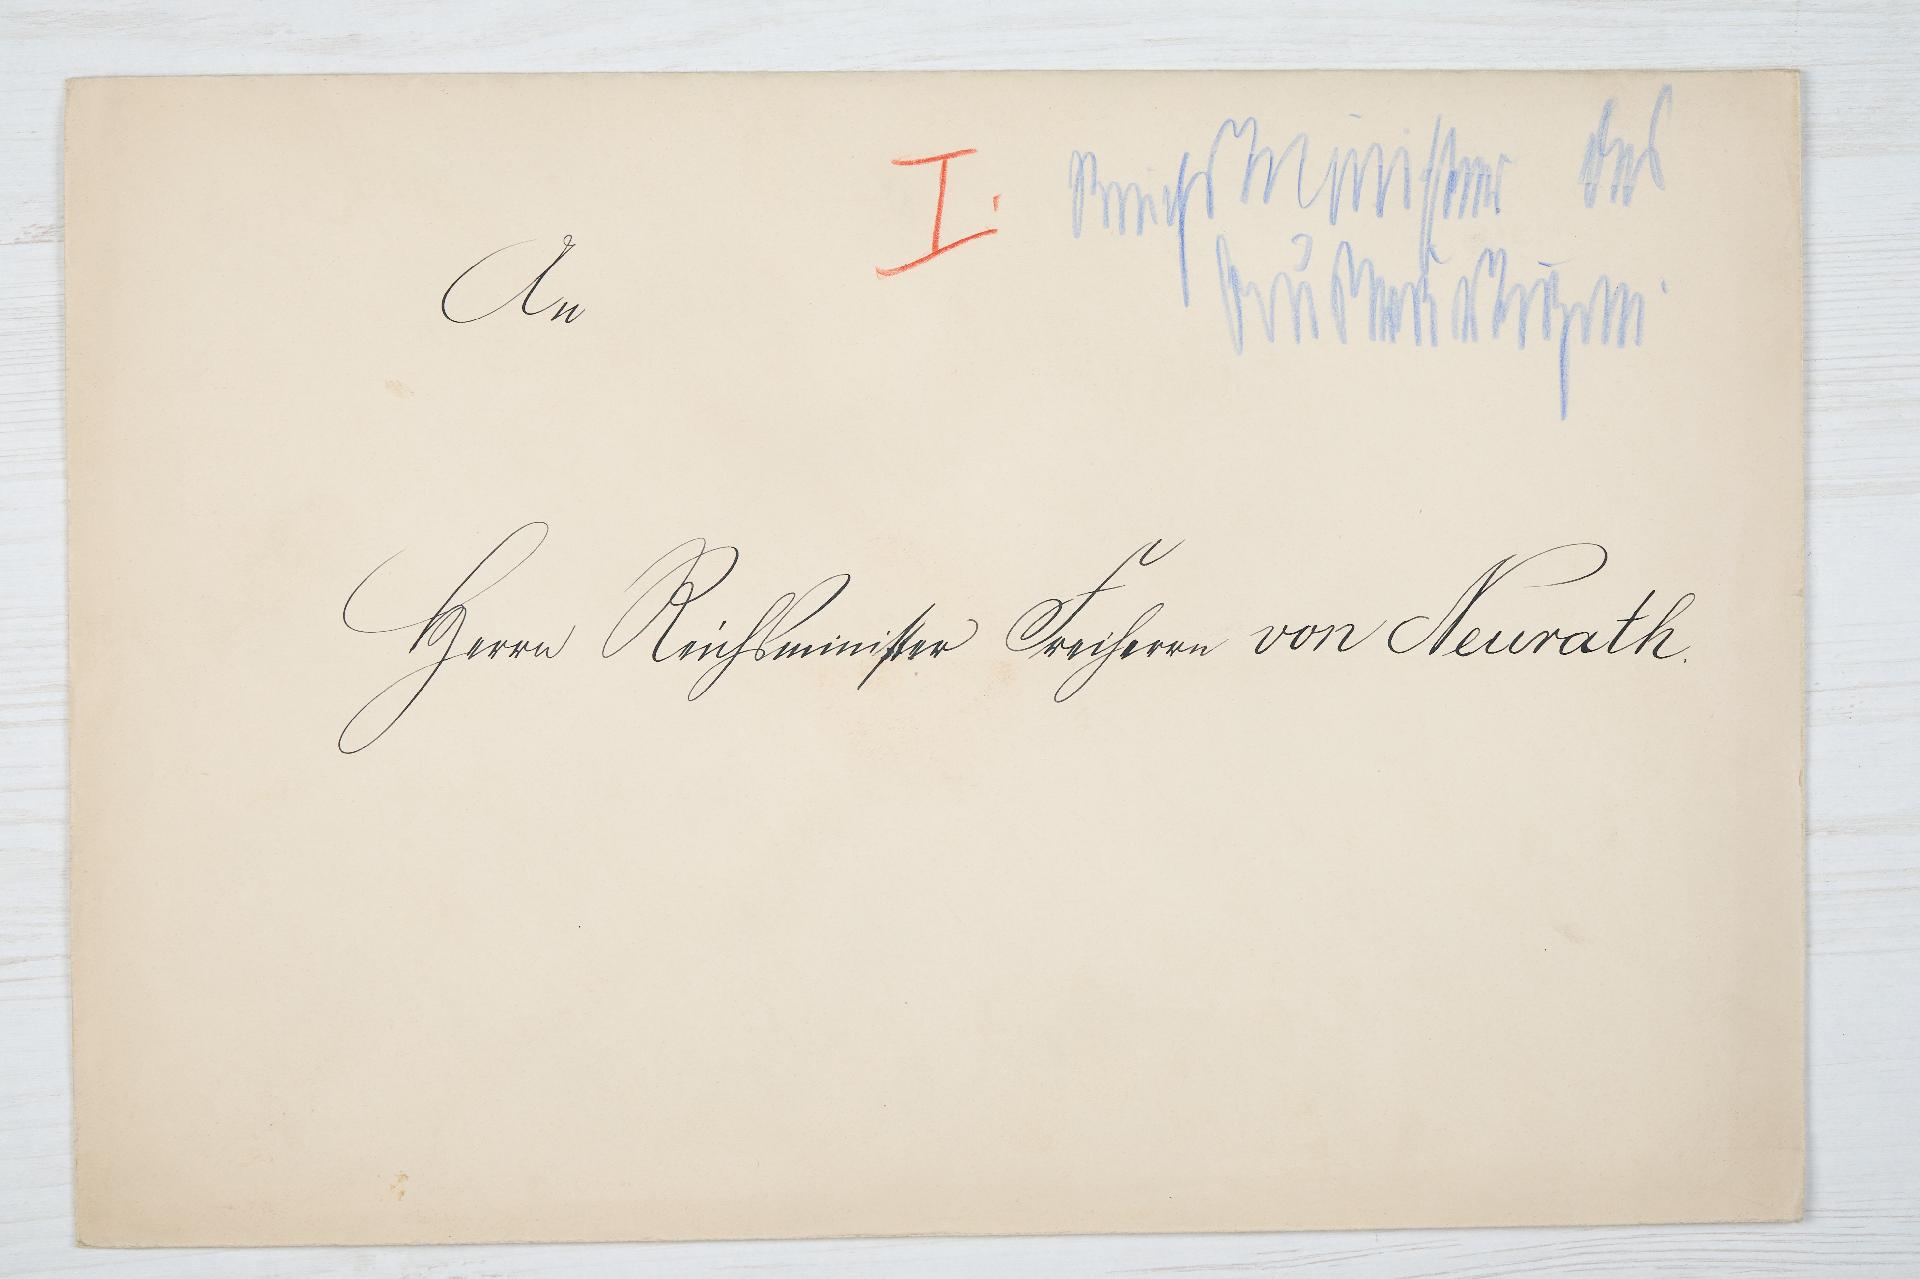 I. Reichs Minister des
Auswärtigen.
An
Herrn Reichsminister Freiherrn von Neurath.